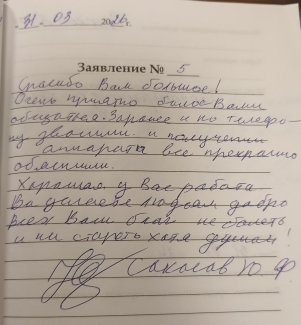 31. 03 2026 г.
Заявление № 5
Спасибо Вам большое!
Очень приятно было с Вами
общаться. Заранее и по телефо-
ну звонили и получении
аппарата все прекрасно
объяснили.
Хорошая у Вас работа
Вы делаете людям добро
всех Вам благ не болеть
и ни стареть хотя
Ю. Ф